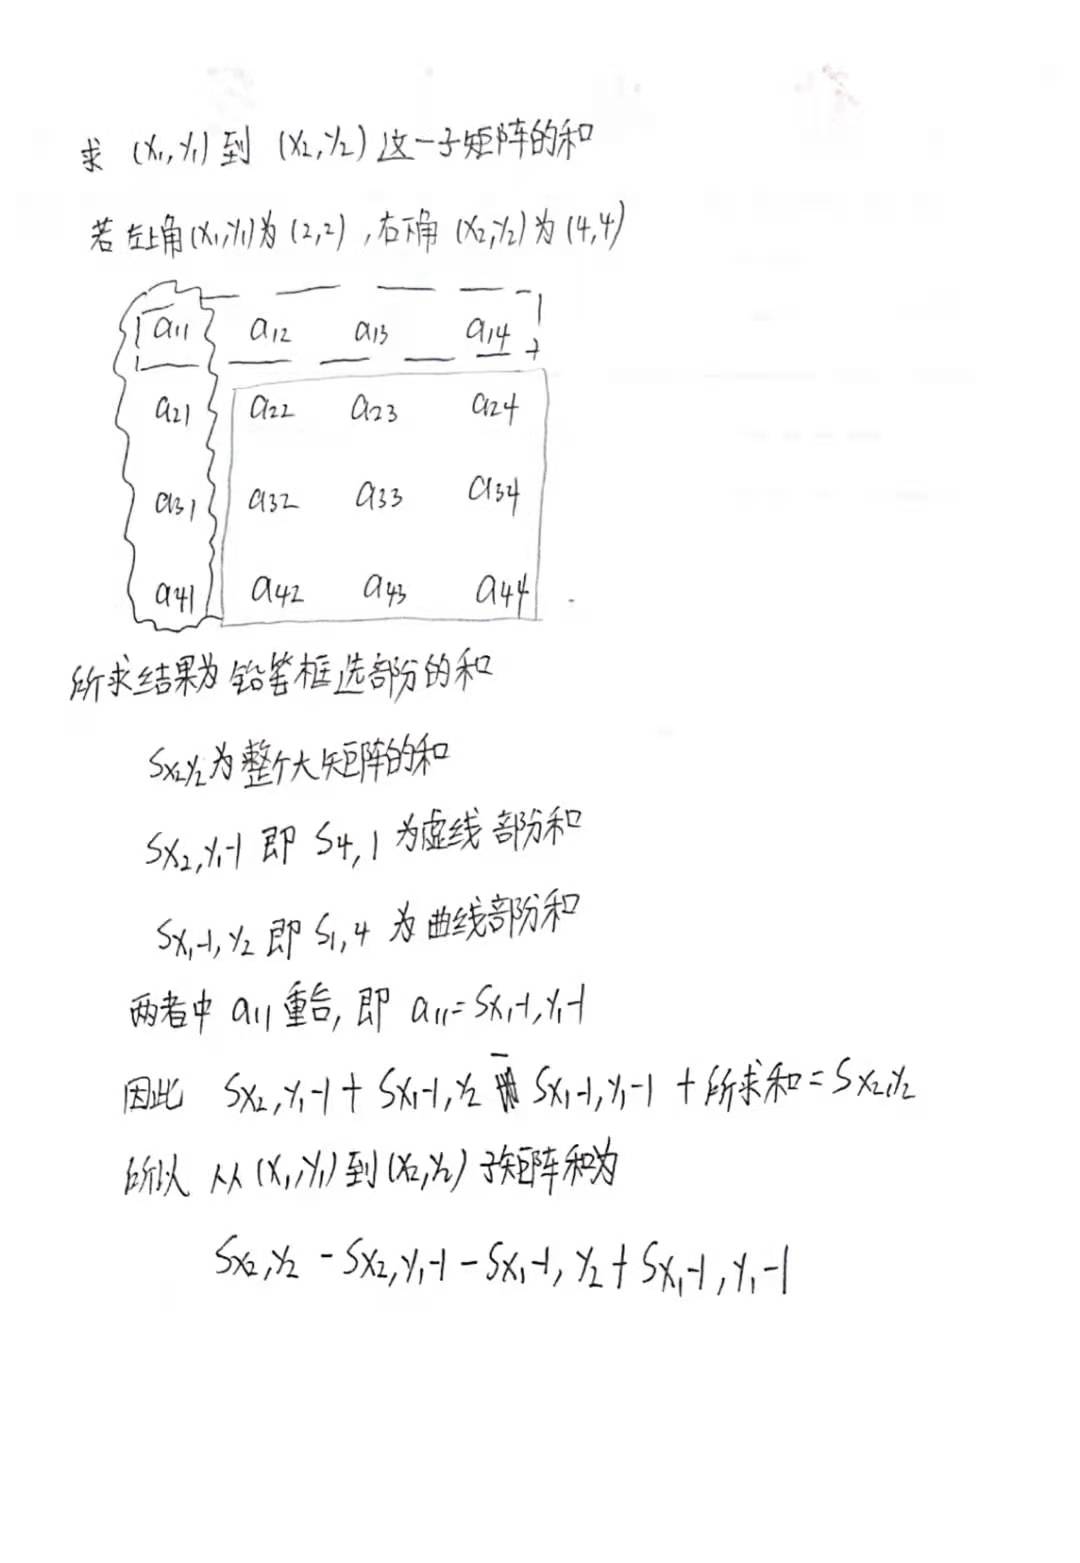 求 (x₁,y₁)到 (x₂,y₂)这一子矩阵的和
若左上角(x₁,y₁)为(2,2),右下角(x₂,y₂)为(4,4)
a11 a12 a13 a14
a21 a22 a23 a24
a31 a32 a33 a34
a41 a42 a43 a44
所求结果为铅笔框选部分的和
Sx₂y₂为整个大矩阵的和
Sx₂,y₁-1 即 S4,1 为虚线部分和
Sx₁-1,y₂ 即 S1,4 为曲线部分和
两者中 a11 重合,即 a11=Sx₁-1,y₁-1
因此 Sx₂,y₁-1+Sx₁-1,y₂ - Sx₁-1,y₁-1 +所求和=Sx₂,y₂
所以 从(x₁,y₁)到(x₂,y₂)子矩阵和为
Sx₂,y₂-Sx₂,y₁-1-Sx₁-1,y₂+Sx₁-1,y₁-1